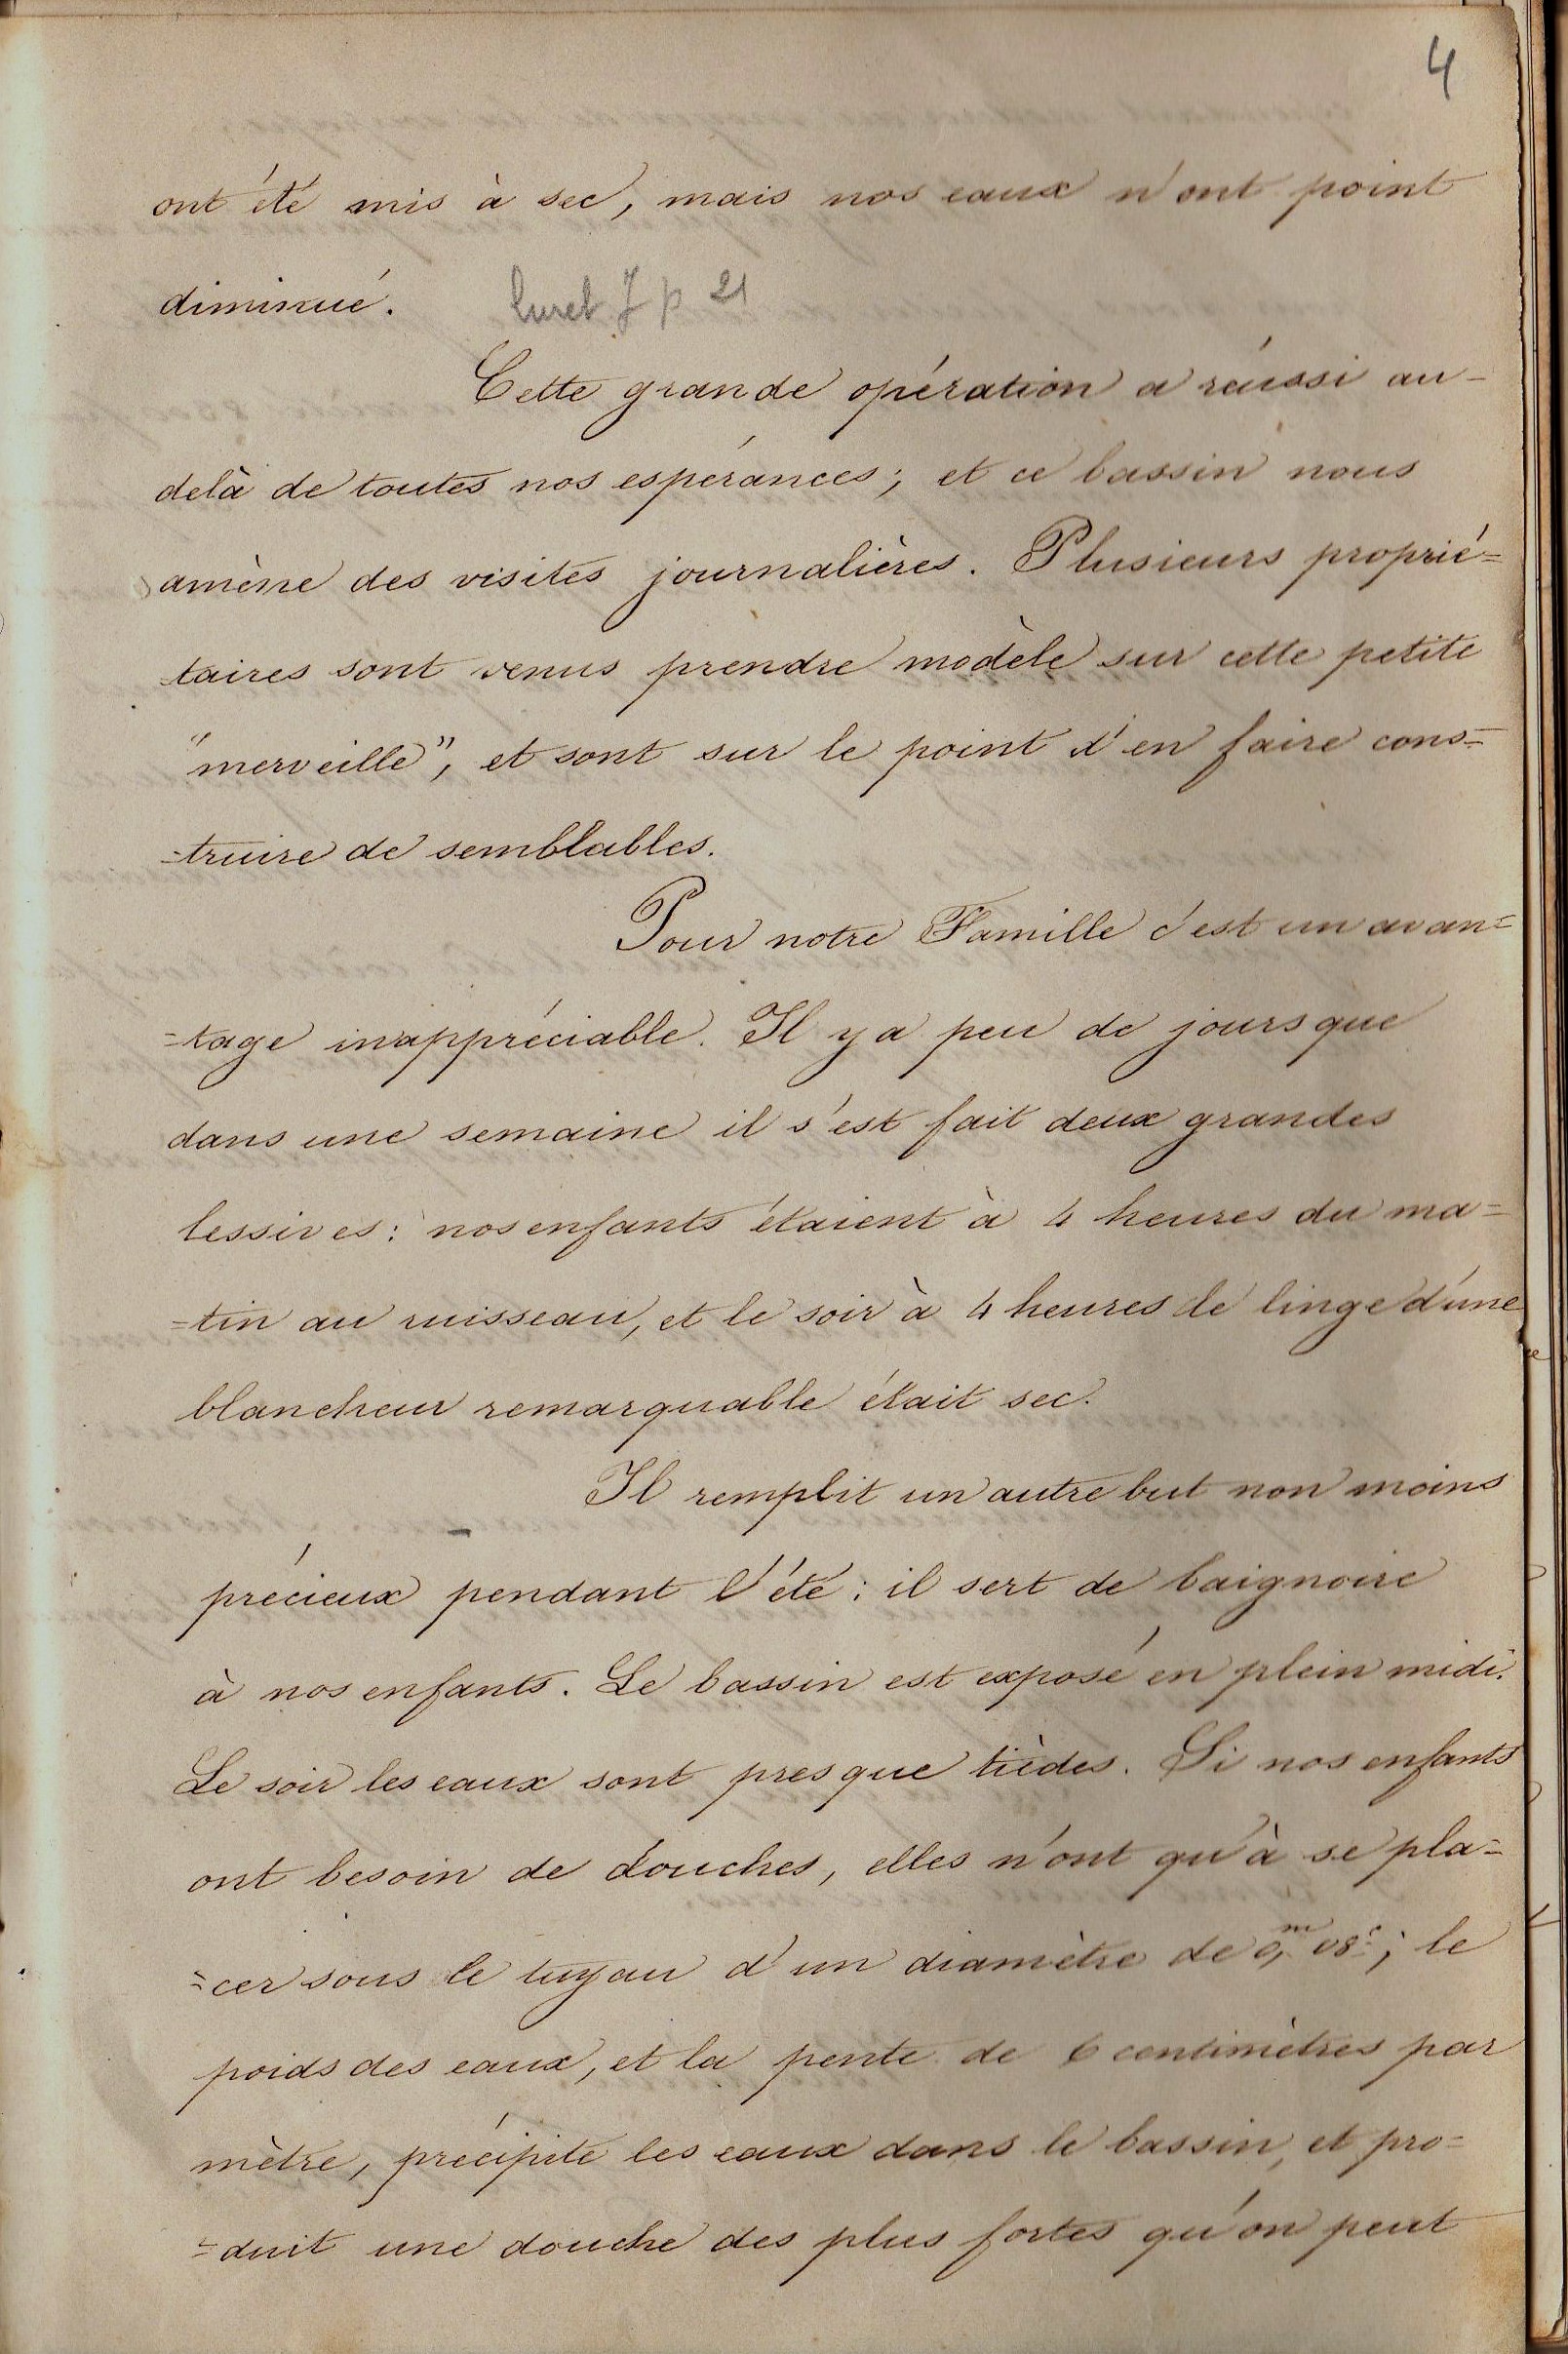 4
ont été mis à sec, mais nos eaux n'ont point
diminué.
p 21
Cette grande opération a réussi au-
delà de toutes nos espérances; et ce bassin nous
amène des visites journalières. Plusieurs proprié=
taires sont venus prendre modèle sur cette petite
"merveille", et sont sur le point d'en faire cons=
=truire de semblables.
Pour notre Famille c'est un avan=
=tage inappréciable. Il y a peu de jours que
dans une semaine il s'est fait deux grandes
lessives: nos enfants étaient à 4 heures du ma=
=tin au ruisseau, et le soir à 4 heures le linge d'une
blancheur remarquable était sec.
Il remplit un autre but non moins
précieux pendant l'été: il sert de baignoire
à nos enfants. Le bassin est exposé en plein midi.
Le soir les eaux sont presque tièdes. Si nos enfants
ont besoin de douches, elles n'ont qu'à se pla=
=cer sous le tuyau d'un diamètre de 0,m 08c; le
poids des eaux, et la pente de 6 centimètres par
mètre, précipite les eaux dans le bassin, et pro=
=duit une douche des plus fortes qu'on peut